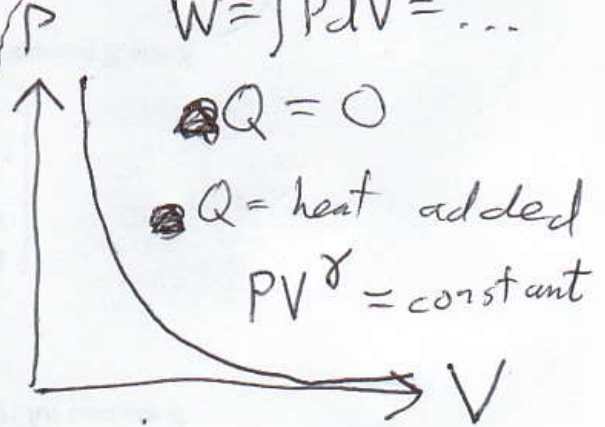 P
W = ∫PdV = ...
Q = 0
Q = heat added
PV^γ = constant
V